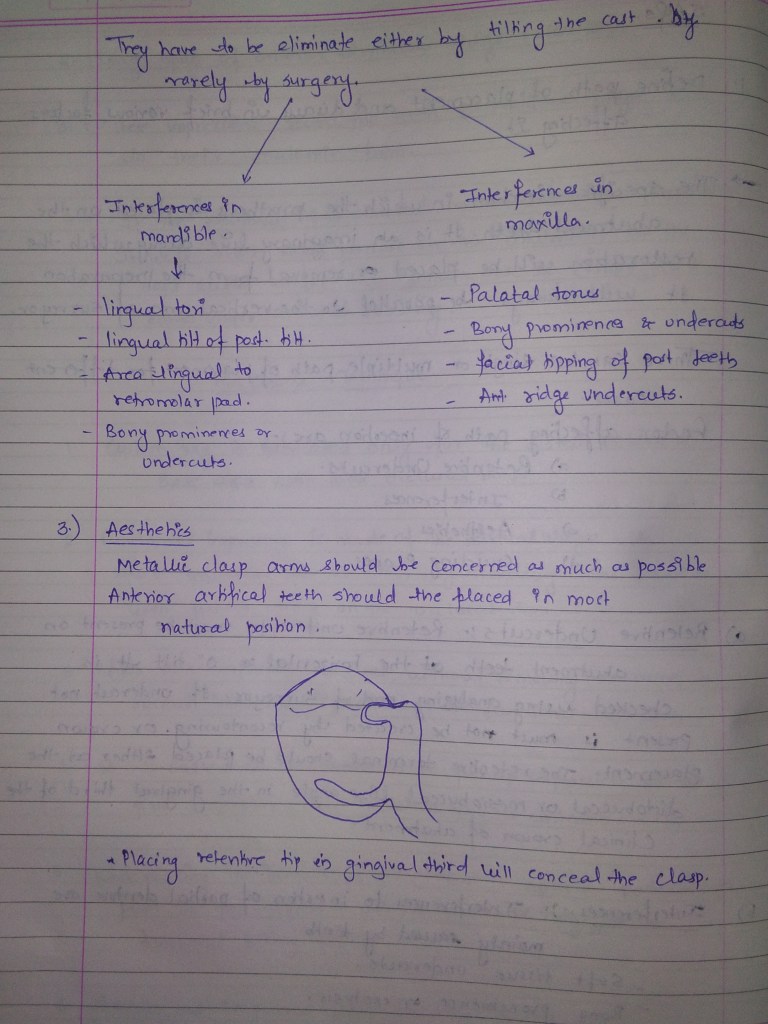 They have to be eliminate either by tilting the cast. By
rarely by surgery.
Interferences in
mandible
Interferences in
maxilla.
- lingual tori
- lingual tilt of post. tilt.
- Area lingual to
retromolar pad.
- Bony prominences or
undercuts.
- Palatal torus
- Bony prominences & undercuts
- facial tipping of post teeth
- Ant. ridge undercuts.
3.) Aesthetics
Metallic clasp arms should be concerned as much as possible
Anterior artifical teeth should the placed in most
natural position.
* Placing retentive tip in gingival third will conceal the clasp.